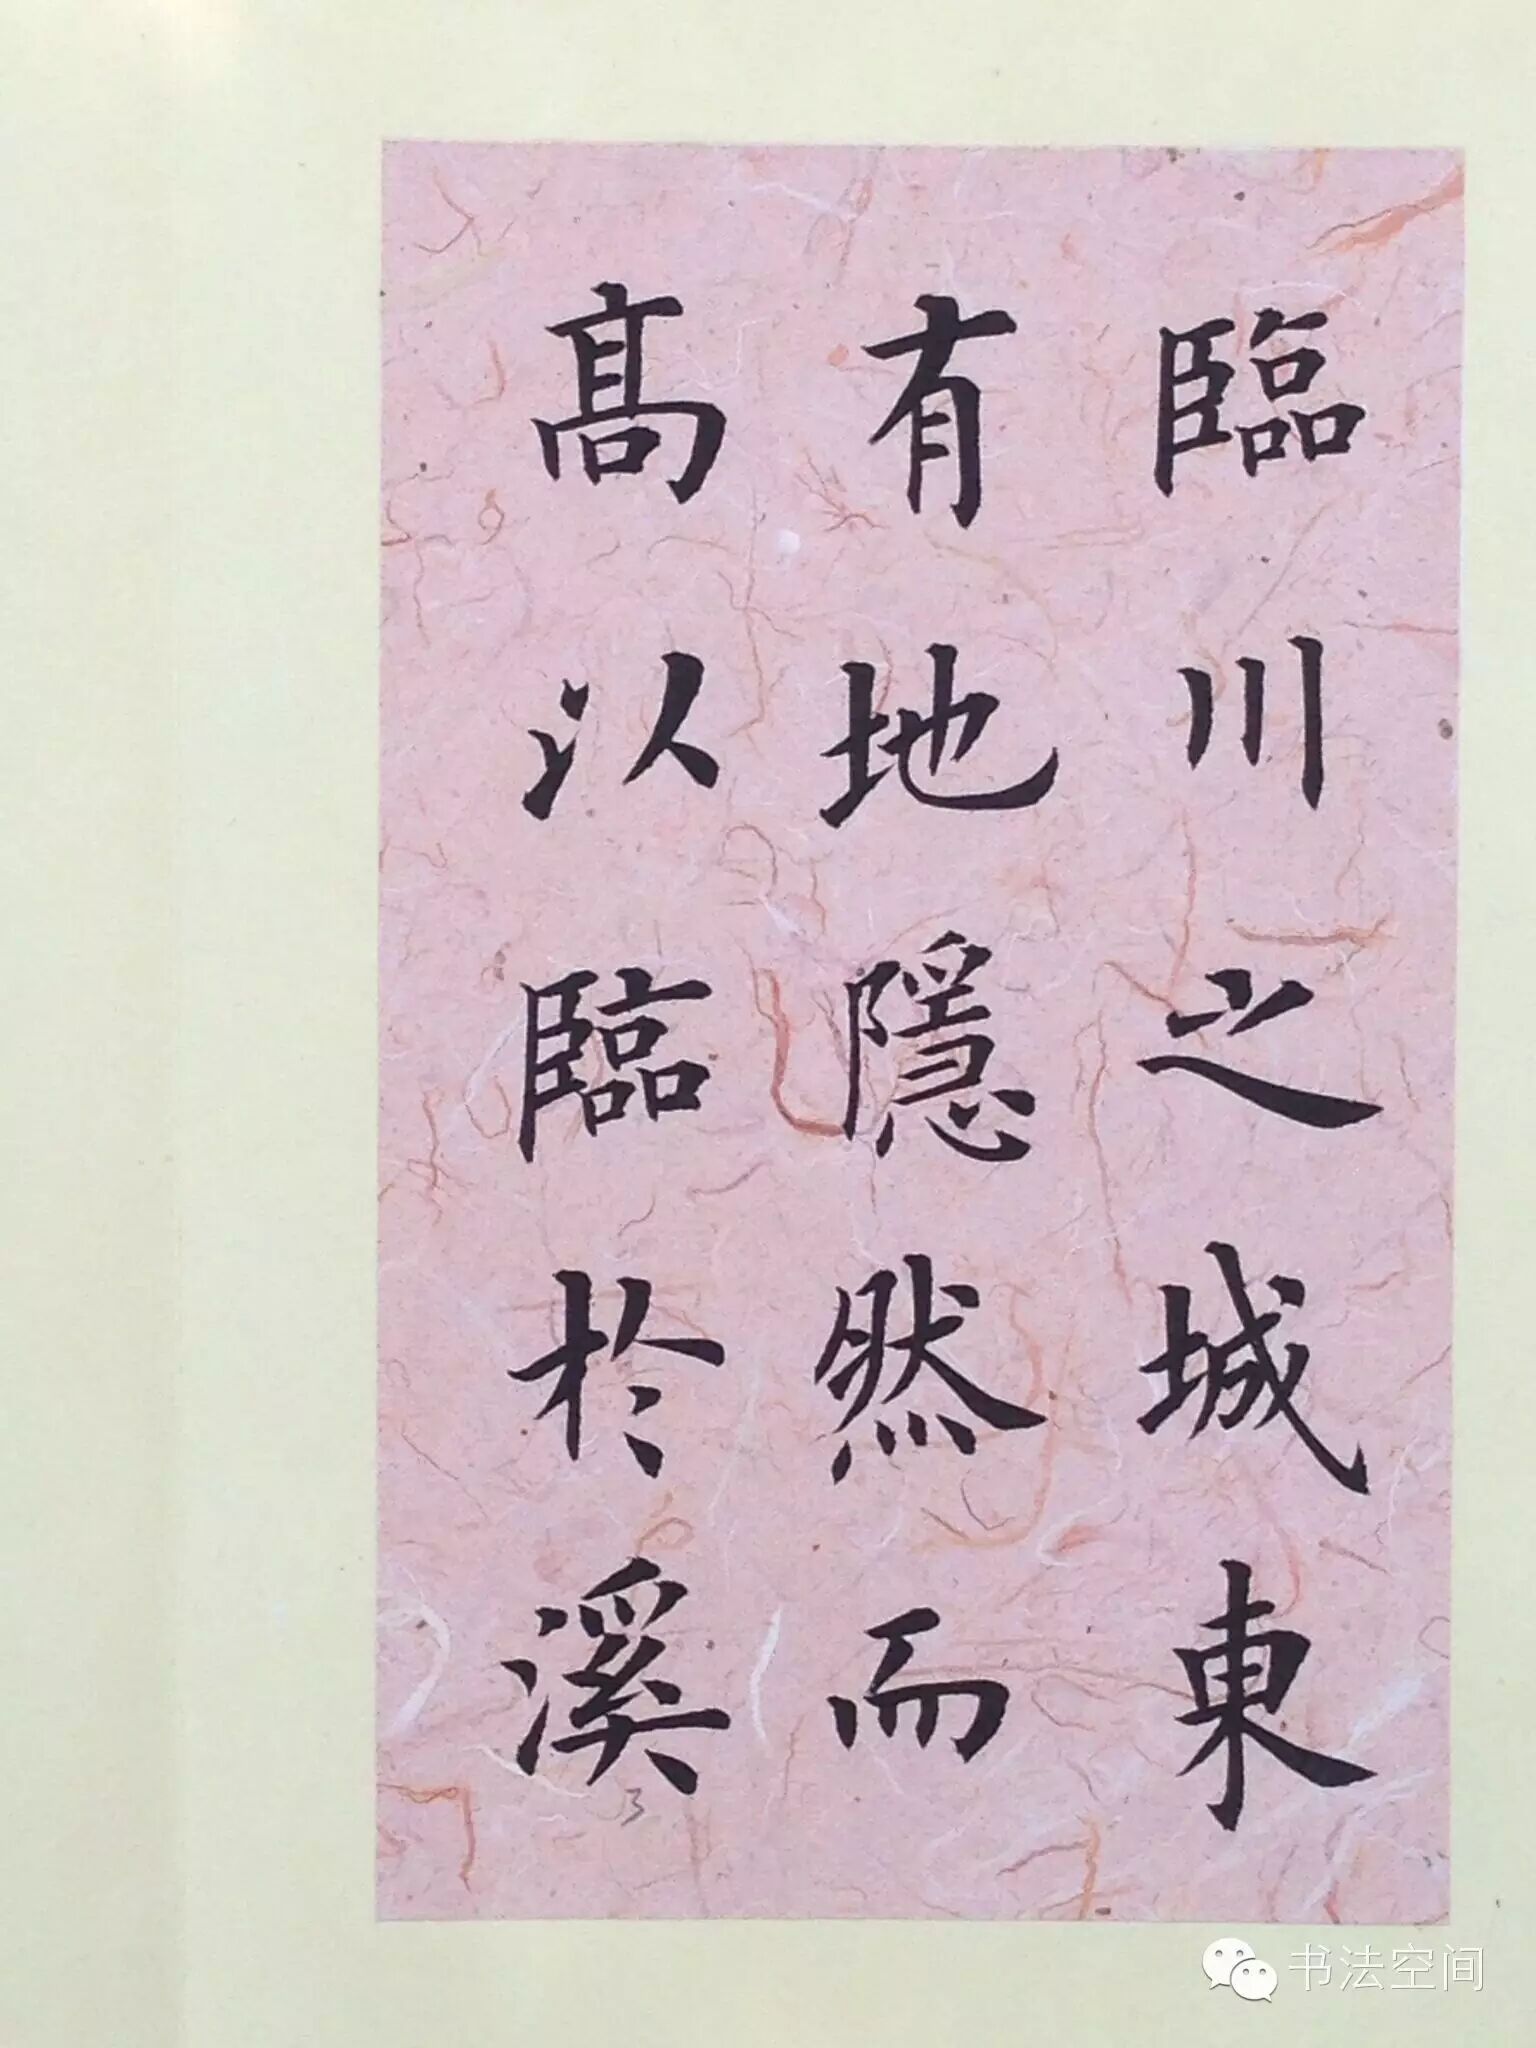 臨川之城東
有地隱然而
髙以臨於溪
书法空间